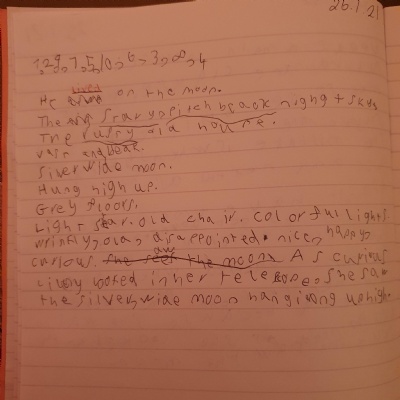 26.1.21
1,2,9,7,5,10,6,3,8,4
He lived on the moon.
The starry, pitch black night + skys
The old house.
Vast and bear.
Silver wide moon.
Hung high up.
Grey floors.
Light star. old chair. colorful lights
wrinkly, old, disappointed. nice, happy,
curious. she sees the moon. As curious
Livvy looked in her telescope. She sa
the silver wide moon hanging up high.